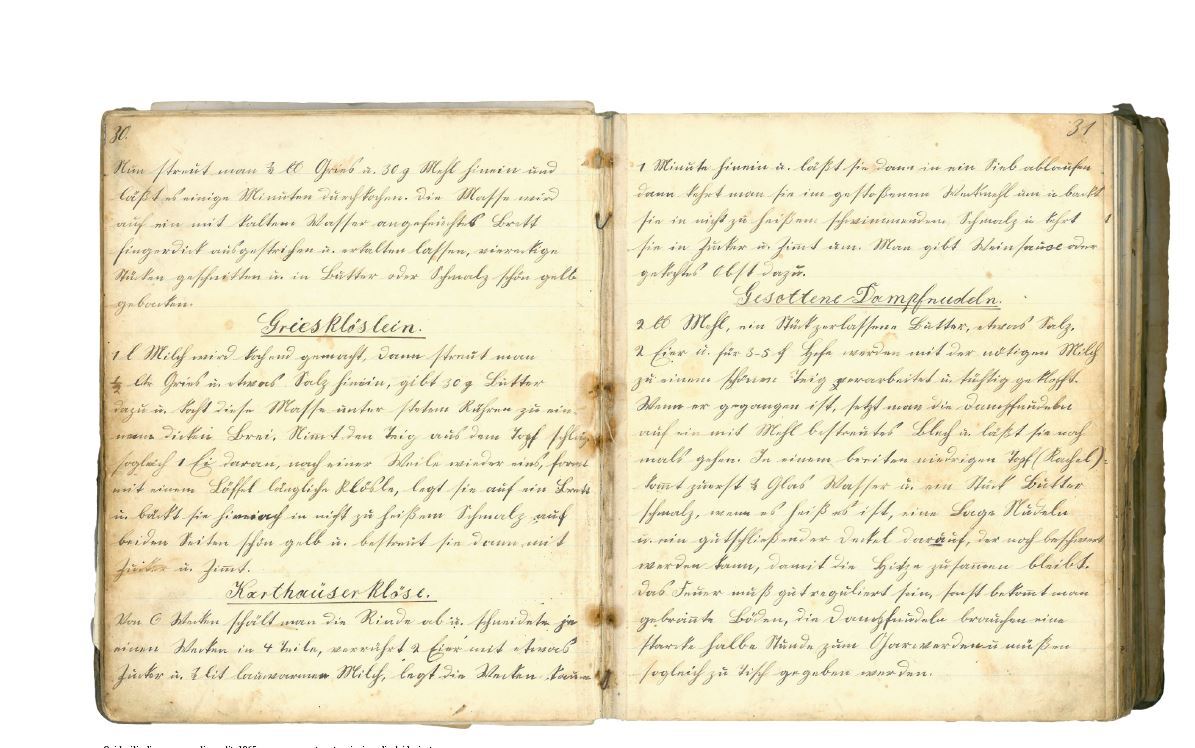 30.
Nun streut man ½ ℔ Gries u. 30 g Mehl hinein und
läßt es einige Minuten durchkochen. Die Masse wird
auf ein mit kaltem Wasser angefeuchtetes Brett
fingerdick ausgestrichen u. erkalten lassen, viereckige
Stücken geschnitten u. in Butter oder Schmalz schön gelb
gebacken.
Griesklöslein.
1 l Milch wird kochend gemacht, dann streut man
Gries u. etwas Salz hinein, gibt 30 g Butter
dazu u. kocht diese Masse unter stetem Rühren zu ein-
nem dicken Brei. Nimt den Teig aus dem Topf schlägt
sogleich 1 Ei daran, nach einer Weile wieder eins, formt
mit einem Löffel längliche Klösle, legt sie auf ein Brett
u. bäckt sie hiernach in nicht zu heißem Schmalz auf
beiden Seiten schön gelb u. bestreut sie dann mit
Zucker u. Zimmt.
Karthäuserklöse.
Von 6 Wecken schält man die Rinde ab u. schneidet je
einen Wecken in 4 Teile, verrührt 2 Eier mit etwas
Zucker u. ½ lit lauwarmen Milch, legt die Wecken kaum
31
1 Minute hinein u. läßt sie dann in ein Sieb ablaufen
dann kehrt man sie im gestoßenem Weckmehl um u backt
sie in nicht zu heißem schwimmendem Schmalz u kehrt
sie in Zucker u. Zimt um. Man gibt Weinsauce oder
gekochtes Obst dazu.
Gesottene Dampfnudeln.
2 ℔ Mehl, ein Stück zerlassene Butter, etwas Salz,
2 Eier u. für 3-5 ₰ Hefe werden mit der nötigen Milch
zu einem schönen Teig verarbeitet u. tüchtig geklopft.
Wenn er gegangen ist, setzt man die Dampfnudeln
auf ein mit Mehl bestreutes Blech u. läßt sie noch
mals gehen. In einem breiten niedrigen Topf (Kachel)
kommt zuerst Glas Wasser u. ein Stück Butter
schmalz, wenn es heiß es ist, eine Lage Nudeln
u. ein gutschließender Deckel darauf, der noch beschwert
werden kann, damit die Hitze zusammen bleibt.
Das Feuer muß gut reguliert sein, sonst bekommt man
gebrannte Böden, die Dampfnudeln brauchen eine
starke halbe Stunde zum Garwerden u müßen
sogleich zu Tisch gegeben werden.